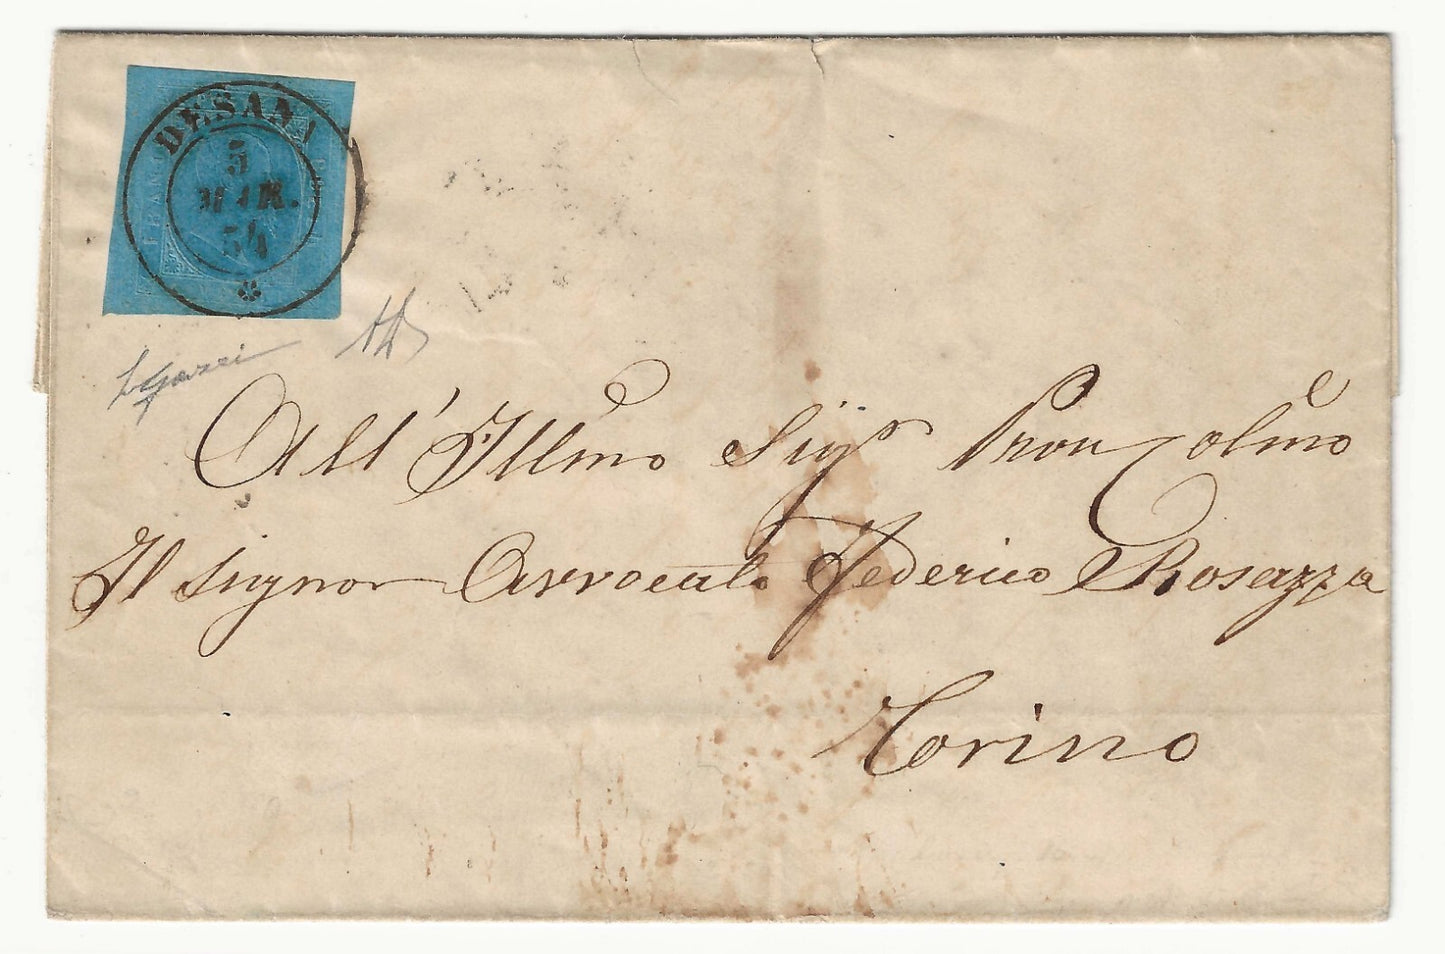 DESANA
5
MAR.
54
All' Illmo Sigr Pron Colmo
Il Signor Avvocato Federico Rosazza
Torino